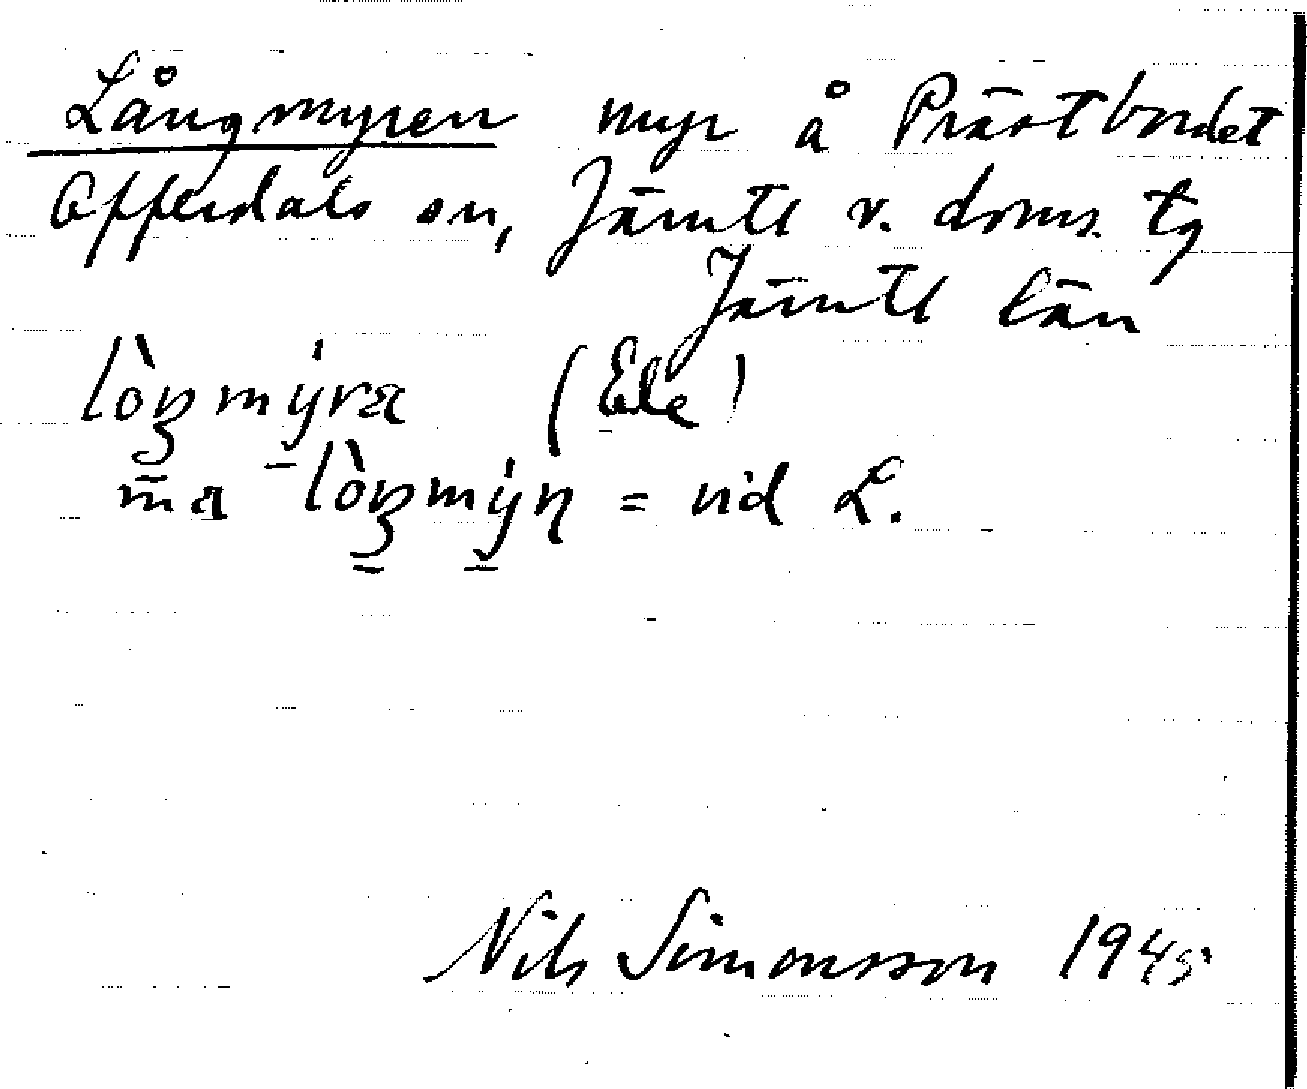 Långmyren myr å Prästbordet
Offerdals sn, Jämtl v. doms. tg
Jämtl län
lòŋmýra (Ele)
ma lòŋmýn = vid L.
Nils Simonsson 1945